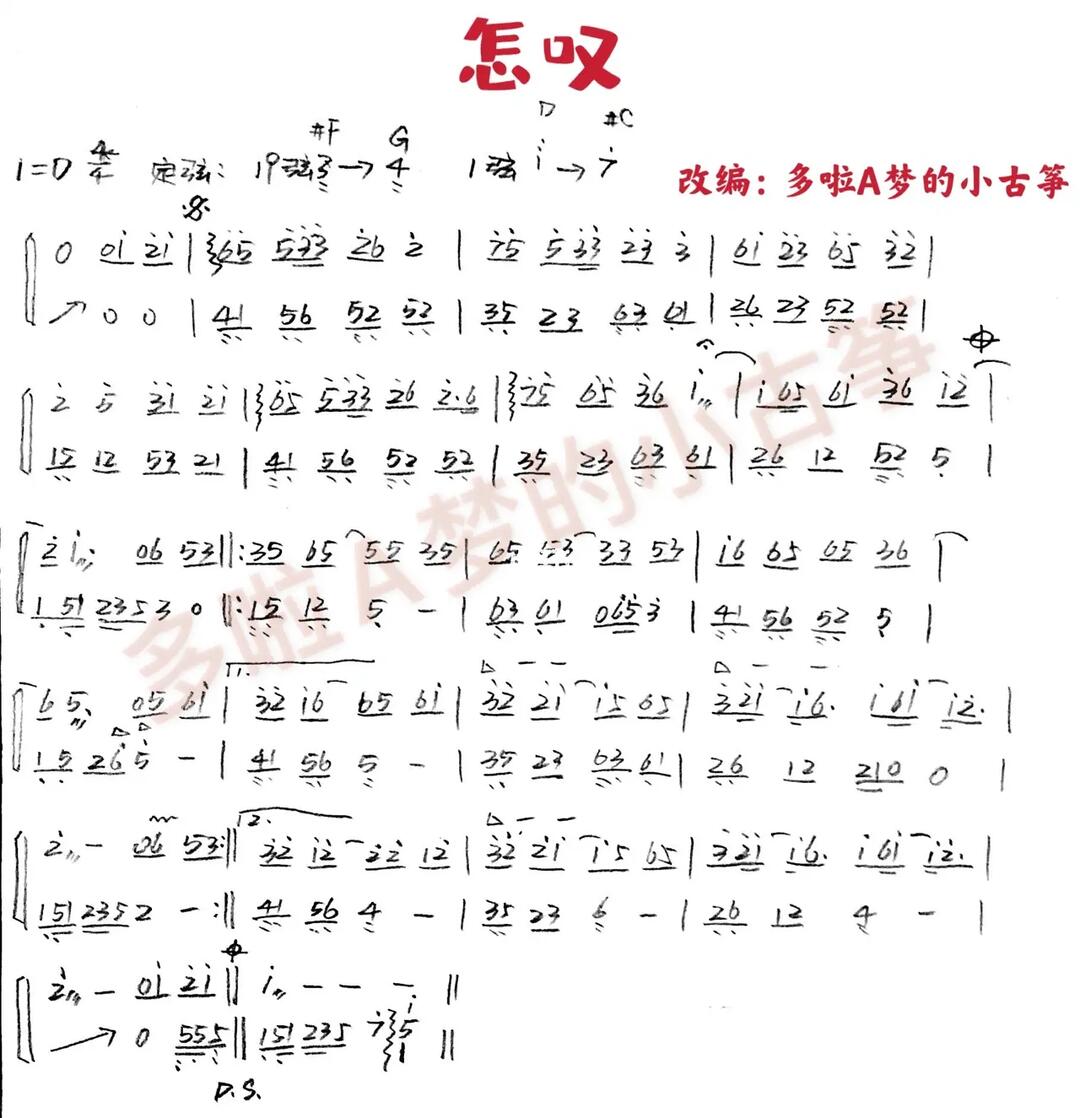 怎叹
#F G D #C
1=D 4/4 定弦: 19弦3→4 1弦i→7
改编：多啦A梦的小古筝
0 0i 2i | 65 533 26 2 | 75 533 23 3 | 6i 23 65 32 |
↗ 0 0 | 41 56 52 52 | 35 23 63 61 | 26 23 52 52 |
2 5 31 21 | 65 533 26 2·6 | 75 65 36 i | i65 6i 36 i2 |
15 12 53 21 | 41 56 52 52 | 35 23 63 61 | 26 12 52 5 |
2 i 06 53 ||: 35 65 55 35 | 65 53 33 53 | i6 65 65 36 |
151 2353 0 ||: 15 12 5 - | 63 61 0653 | 41 56 52 5 |
1.
65. 05 6i | 32 i6 65 6i | 32 2i i5 65 | 32i i6. i6i i2. |
15 26 5 - | 41 56 5 - | 35 23 63 61 | 26 12 210 0 |
2.
2 - 06 53 :|| 32 i2 22 i2 | 32 2i i5 65 | 32i i6. i6i i2. |
151 2352 - :|| 41 56 4 - | 35 23 6 - | 26 12 4 - |
2 - 0i 2i || i - - - ||
→ 0 555 || 151 235 7 i51 ||
D.S.
多啦A梦的小古筝